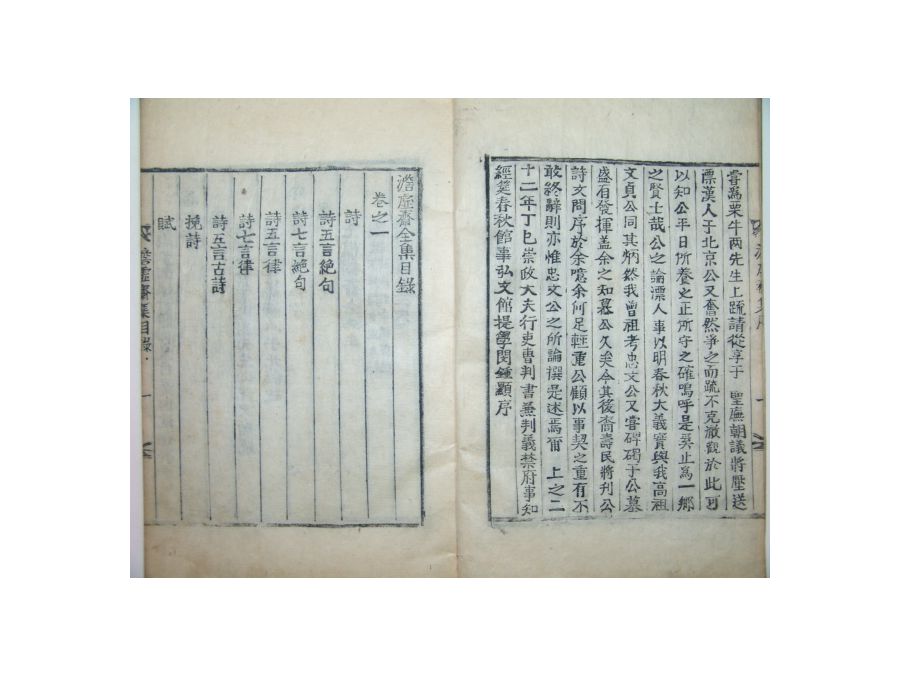 嘗爲栗牛两先生上䟽請從享于 聖廡朝議將壓送
漂漢人于北京公又奮然爭之而䟽不克澈觀於此可
以知公平日所養之正所守之確嗚呼是奚止爲一鄕
之賢士哉公之論漂人事以明春秋大義實與我高祖
文貞公同其炳然我曾祖考忠文公又嘗碑碣于公墓
盛有發揮盖余之知慕公久矣今其後裔壽民將刊公
詩文問序於余噫余何足輕重公顧以事契之重有不
敢終辭則亦惟忠文公之所論撰是述焉爾 上之二
十二年丁巳崇政大夫行吏曹判書兼判義禁府事知
經筵春秋館事弘文館提學閔鍾顯序
澹虛齋全集目錄
卷之一
詩
詩五言絶句
詩七言絶句
詩五言律
詩七言律
詩五言古詩
挽詩
賦
澹虛齋集目錄
一